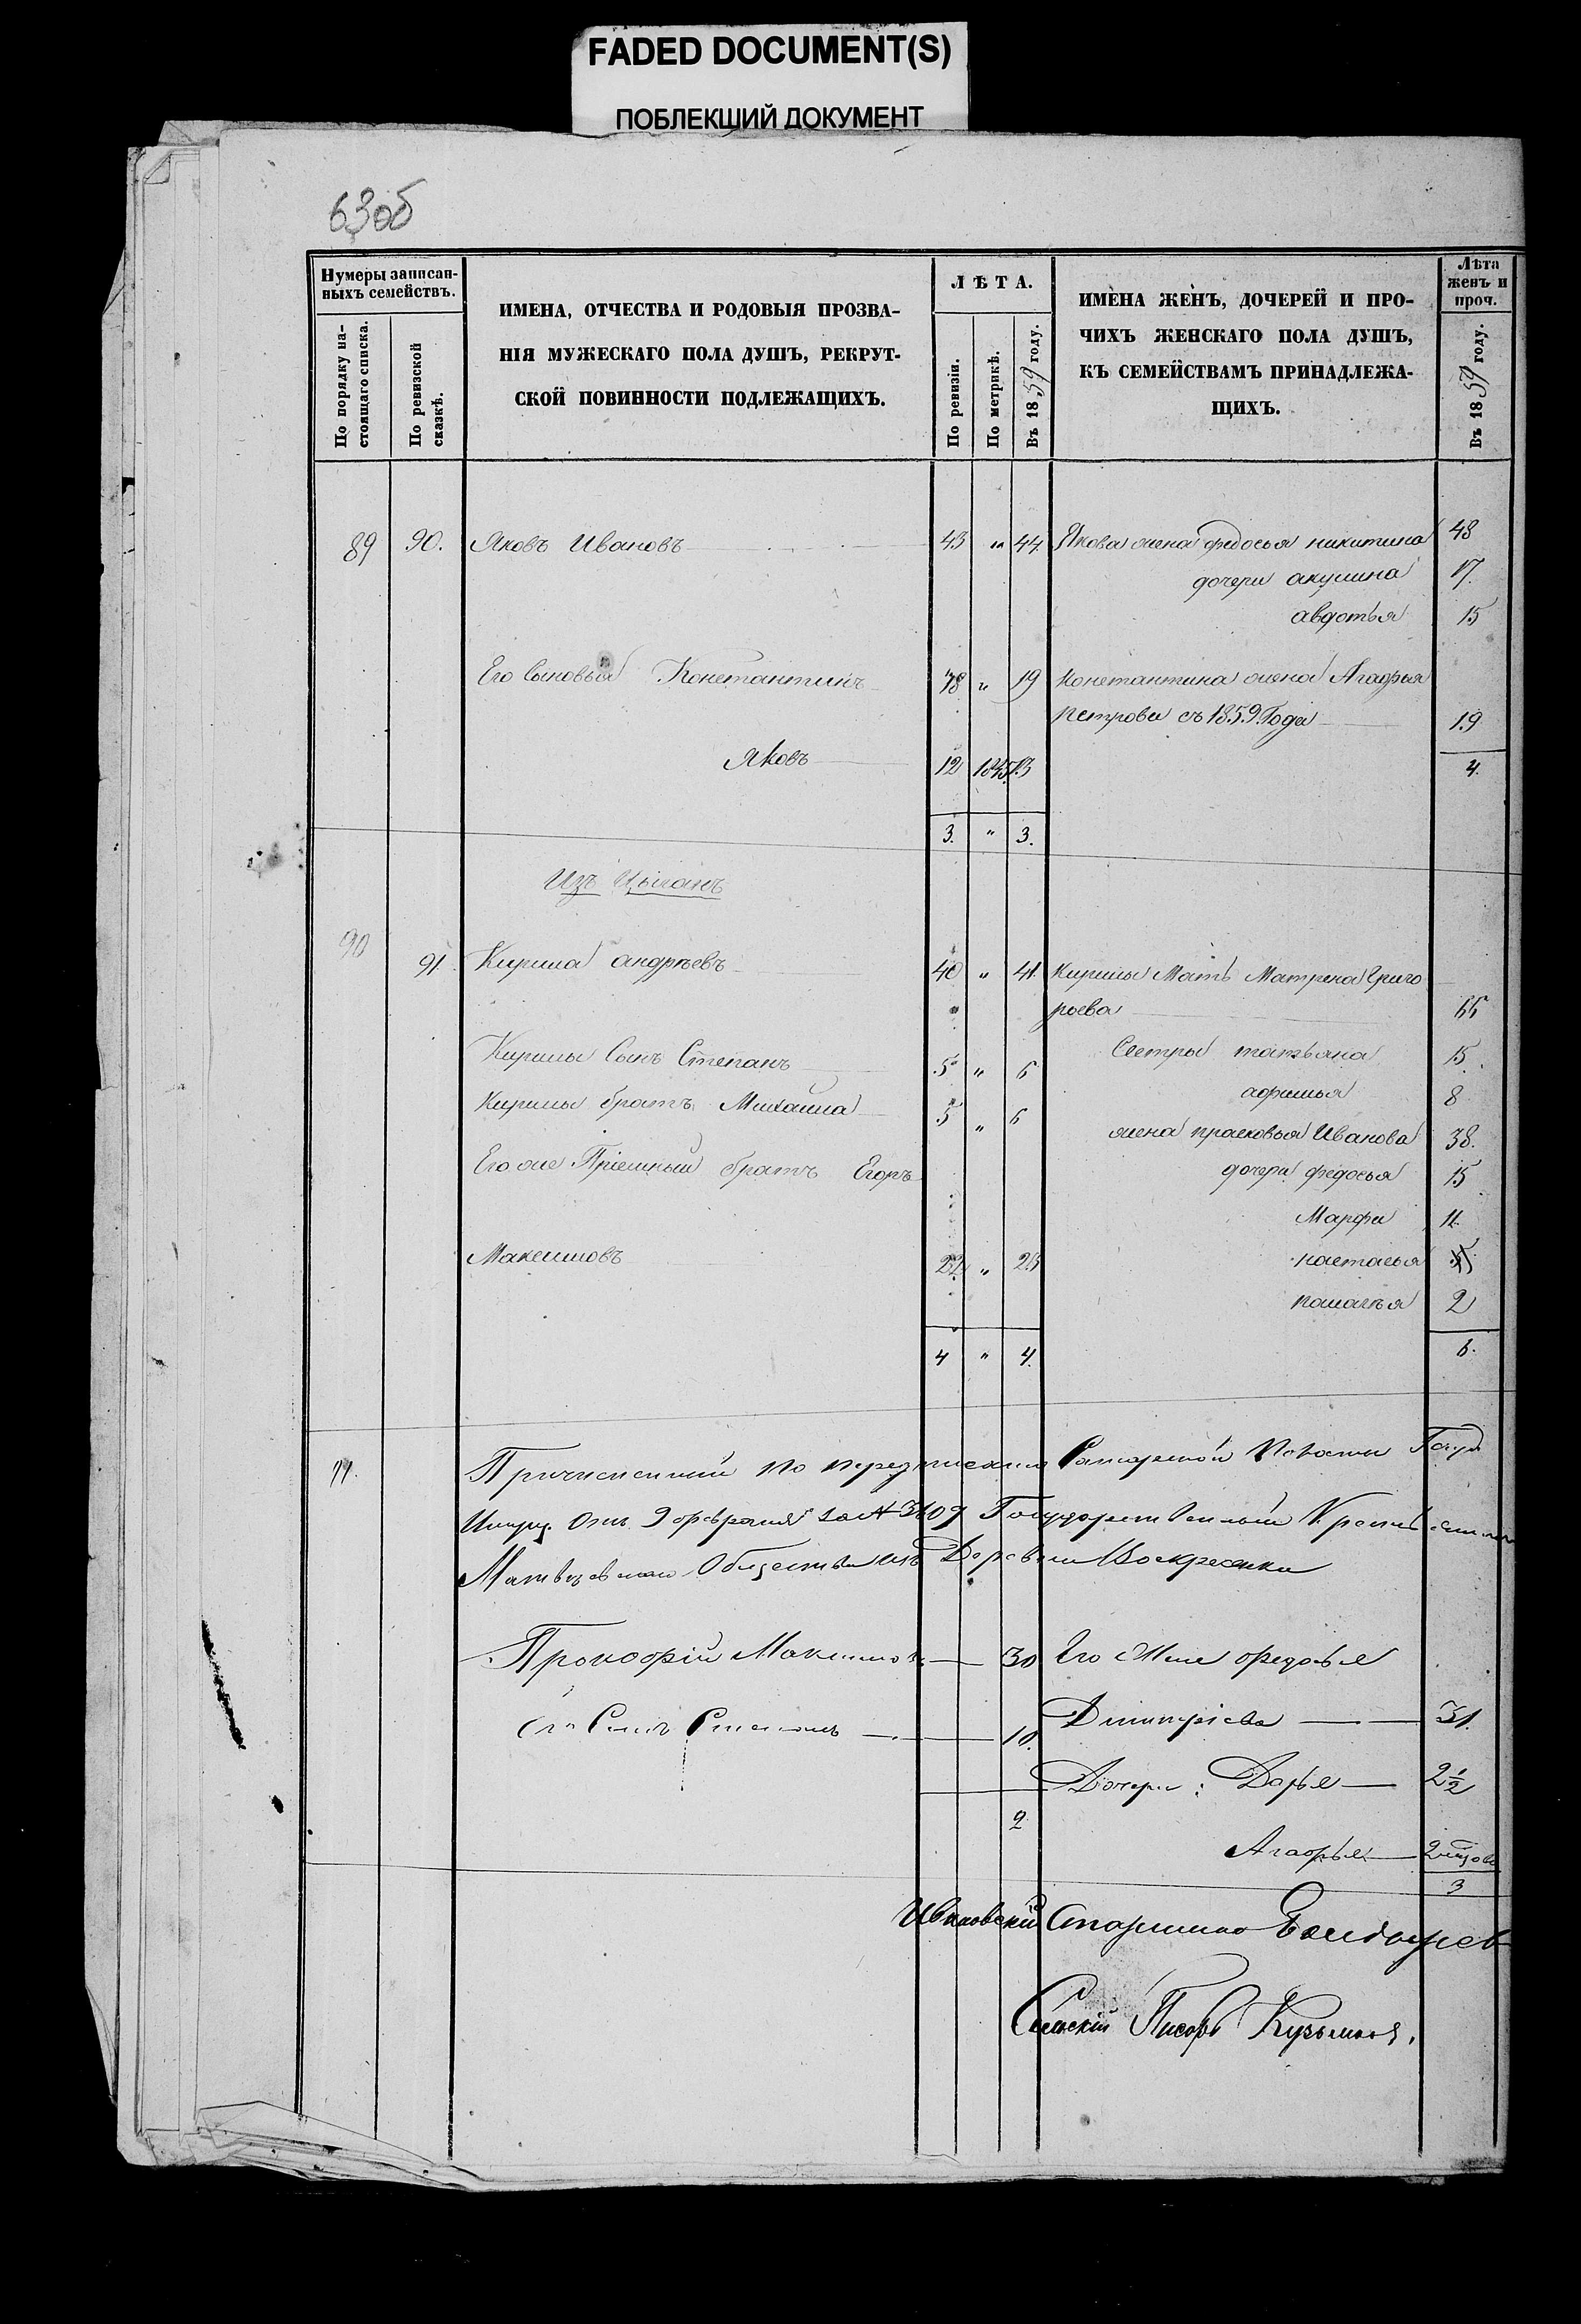 FADED DOCUMENT(S)
ПОБЛЕКШИЙ ДОКУМЕНТ
63об
Нумеры записан-
ныхъ семействъ.
По порядку на-
стоящаго списка.
По ревизской
сказкѣ.
ИМЕНА, ОТЧЕСТВА И РОДОВЫЯ ПРОЗВА-
НІЯ МУЖЕСКАГО ПОЛА ДУШЪ, РЕКРУТ-
СКОЙ ПОВИННОСТИ ПОДЛЕЖАЩИХЪ.
ЛѢТА.
По ревизіи.
По метрикѣ.
Въ 1859 году.
ИМЕНА ЖЕНЪ, ДОЧЕРЕЙ И ПРО-
ЧИХЪ ЖЕНСКАГО ПОЛА ДУШЪ,
КЪ СЕМЕЙСТВАМЪ ПРИНАДЛЕЖА-
ЩИХЪ.
Лѣта
женъ и
проч.
Въ 1859 году.
89 90. Яковъ Ивановъ 43 " 44 Якова жена федосья никитина 48
дочери акулина 17.
авдотья 15
Его Сыновья Константинъ 18 " 19 Константина жена Агафья
петрова съ 1859 Года 19
Яковъ 12 1845 13
4.
3. " 3.
Изъ Цыганъ
90 91. Кирила андреевъ 40 " 41. Кирилы Мать Матрена Григо
рьева 66
Кирилы Сынъ Степанъ 5 " 6 Сестры татьяна 15.
Кирилы братъ Михаила 5 " 6 афимья 8
жена прасковья Иванова 38.
Его же Пріемный братъ Егоръ дочери федосья 15
Марфа 11.
Максимовъ 22 " 23 настасья
палагѣя 2
4 " 4. 6.
Причисленный по предписанію Самарской Палаты Госуд
Имущ. Отъ 9 февраля за № Государственный
Общества изъ Деревни Воскресенки
Прокофій Максимовъ 30 Его Жена федосья
Дмитріева 31.
Его Сынъ Степанъ 10.
Дочери: Дарья 2½
2
Агафья
3
Ивановскій Старшина
Сельскій Писарь Кузьминъ.